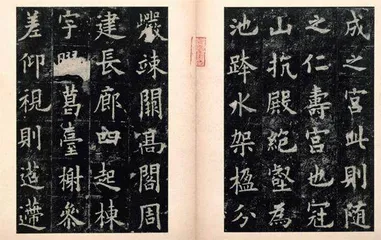 成之宮此則随
之仁壽宮也冠
山抗殿絕壑為
池跨水架楹分
巖竦闕高閣周
建長廊四起棟
宇膠葛臺榭叅
差仰視則迢遰